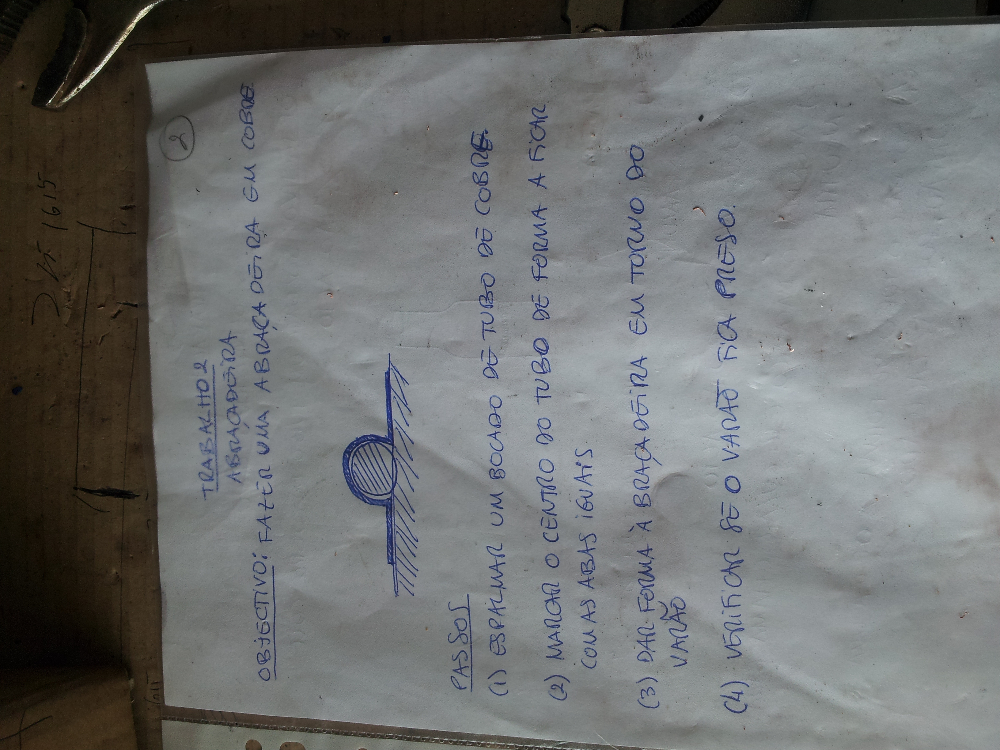 2
TRABALHO 2
ABRAÇADEIRA
OBJECTIVO: FAZER UMA ABRAÇADEIRA EM COBRE
PASSOS
(1) ESPALMAR UM BOCADO DE TUBO DE COBRE.
(2) MARCAR O CENTRO DO TUBO DE FORMA A FICAR
COM AS ABAS IGUAIS
(3) DAR FORMA À BRAÇADEIRA EM TORNO DO
VARÃO
(4) VERIFICAR SE O VARÃO FICA PRESO.
1615